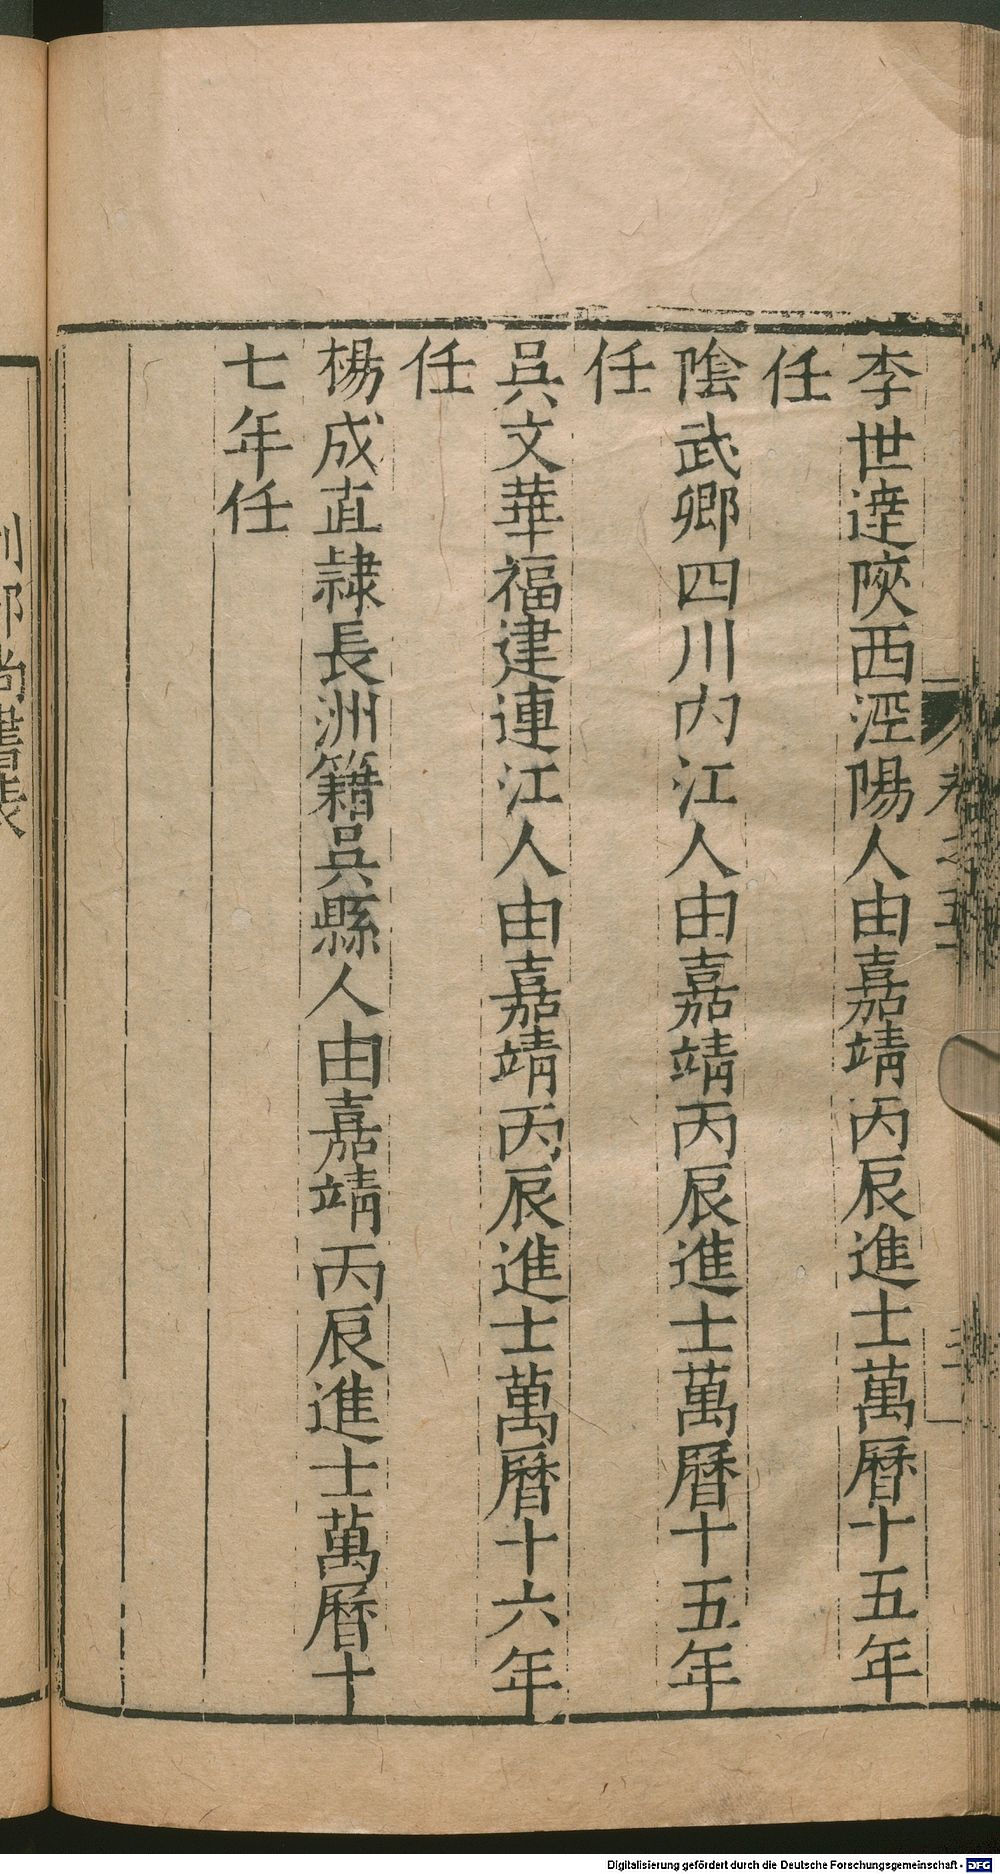 李世達陝西涇陽人由嘉靖丙辰進士萬曆十五年
任
陰武卿四川內江人由嘉靖丙辰進士萬曆十五年
任
吳文華福建連江人由嘉靖丙辰進士萬曆十六年
任
楊成直隷長洲籍吳縣人由嘉靖丙辰進士萬曆十
七年任
卷之五
三
刑部尚書表
Digitalisierung gefördert durch die Deutsche Forschungsgemeinschaft - DFG